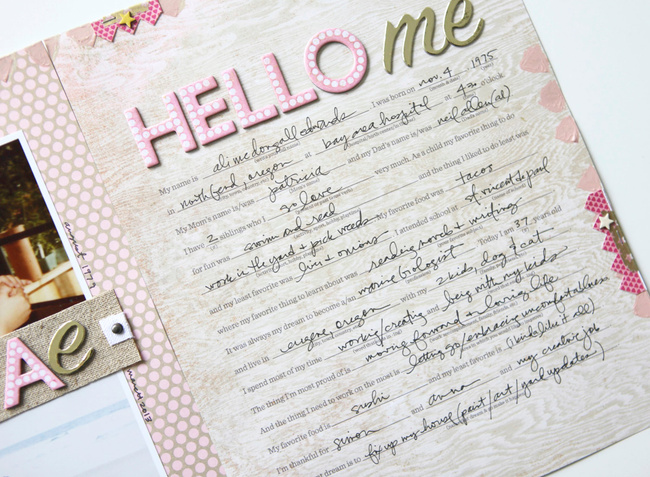 HELLO me
My name is ali mcdougall edwards. I was born on nov. 4 1975
in north bend, oregon at bay area hospital at 4:20 o'clock
My Mom's name is/was patricia and my Dad's name is/was neil allen (al)
I have 2 siblings who I so love very much. As a child my favorite thing to do
for fun was swim and read and the thing I liked to do least was
work in the yard & pick weeds. My favorite food was tacos
and my least favorite was liver & onions. I attended school at st vincent de paul
where my favorite thing to learn about was reading novels & writing
It was always my dream to become a/an marine biologist. Today I am 37 years old
and live in eugene, oregon with my 2 kids, dog & cat
I spend most of my time working/creating and being with my kids
The thing I'm most proud of is moving forward & loving life
And the thing I need to work on the most is letting go/embracing uncomfortableness
My favorite food is sushi and my least favorite is (i kinda like it all)
I'm thankful for simon and anna and my creative job
dream is to fix up my house (paint/art/yard updates)
august 1979
Ae
march 2013